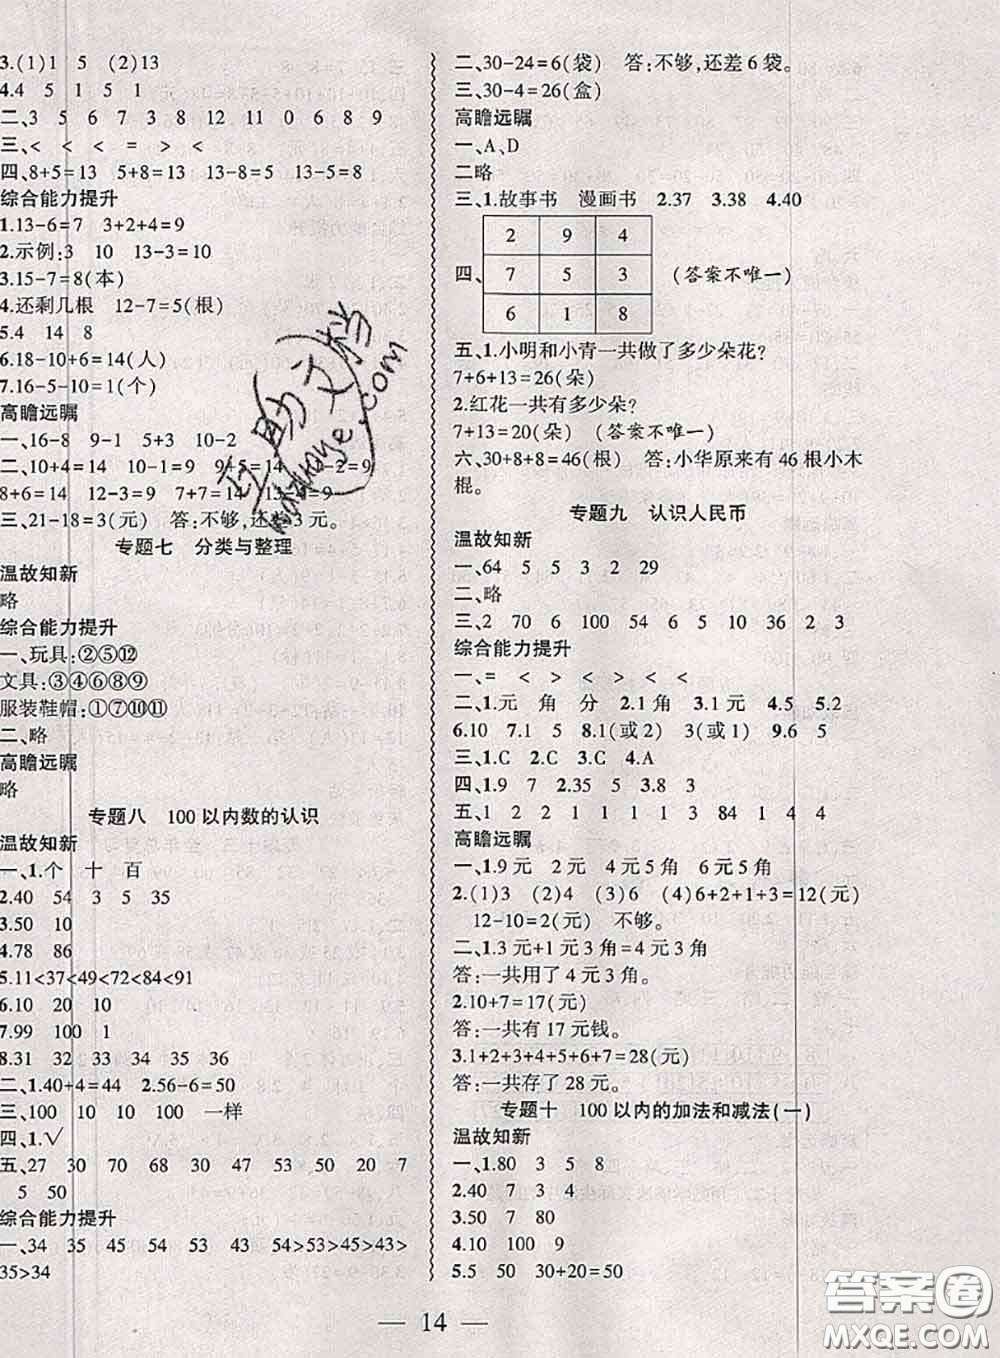 3.(1)1 5 (2)13
4.4 5 1 5 1
二、3 5 6 7 3 8 12 11 0 6 8 9
三、< < < = > <
四、8+5=13 5+8=13 13-8=5 13-5=8
综合能力提升
1.13-6=7 3+2+4=9
2.示例:3 10 13-3=10
3.15-7=8(本)
4.还剩几根 12-7=5(根)
5.4 14 8
6.18-10+6=14(人)
7.16-5-10=1(个)
高瞻远瞩
一、16-8 9-1 5+3 10-2
二、10+4=14 10-1=9 9+5=14 11-2=9
8+6=14 12-3=9 7+7=14 13-4=9
三、21-18=3(元) 答:不够,还差3元。
专题七 分类与整理
温故知新
略
综合能力提升
一、玩具:②⑤⑫
文具:③④⑥⑧⑨
服装鞋帽:①⑦⑩⑪
二、略
高瞻远瞩
略
专题八 100以内数的认识
温故知新
一、1.个 十 百
2.40 54 3 5 35
3.50 10
4.78 86
5.11<37<49<72<84<91
6.10 20 10
7.99 100 1
8.31 32 33 34 35 36
二、1.40+4=44 2.56-6=50
三、100 10 10 100 一样
四、1.√
五、27 30 70 68 30 47 53 50 20 7
5 50
综合能力提升
一、34 35 45 54 53 43 54>53>45>43>
35>34
二、30-24=6(袋) 答:不够,还差6袋。
三、30-4=26(盒)
高瞻远瞩
一、A、D
二略
三、1.故事书 漫画书 2.37 3.38 4.40
2 9 4
四、 7 5 3 (答案不唯一)
6 1 8
五、1.小明和小青一共做了多少朵花?
7+6+13=26(朵)
2.红花一共有多少朵?
7+13=20(朵) (答案不唯一)
六、30+8+8=46(根) 答:小华原来有46根小木
棍。
专题九 认识人民币
温故知新
一、64 5 5 3 2 29
二、略
三、2 70 6 100 54 6 5 10 36 2 3
综合能力提升
一、= < > < > < <
二、1.元 角 分 1.元 角 3.1元 4.5 5.2
6.10 7.1 5 8.1(或2) 3(或1) 9.6 5
三、1.C 2.C 3.C 4.A
四、1.9 7 2.35 5 3.8
五、1 2 2 1 1 1 1 3 84 1 4 4
高瞻远瞩
一、1.9元 2元 4元5角 6元5角
2.(1)3 (2)4 (3)6 (4)6+2+1+3=12(元)
12-10=2(元) 不够。
二、1.3元+1元3角=4元3角
答:一共用了4元3角。
2.10+7=17(元)
答:一共有17元钱。
3.1+2+3+4+5+6+7=28(元)
答:一共存了28元。
专题十 100以内的加法和减法(一)
温故知新
一、1.80 3 5 8
2.40 7 3 4
3.50 7 80
4.10 100 9
5.5 50 30+20=50
14
互助文档
huzhuwenge.com
答案圈
MXQE.COM